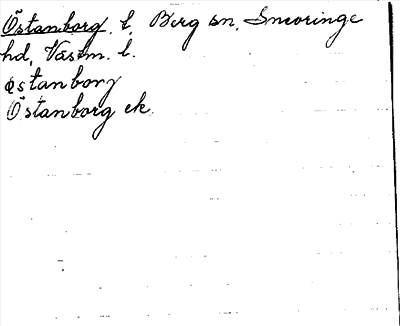 Östanborg, t, Berg sn, Snevringe
hd, Västm. l.
östanborg
Östanborg ek.